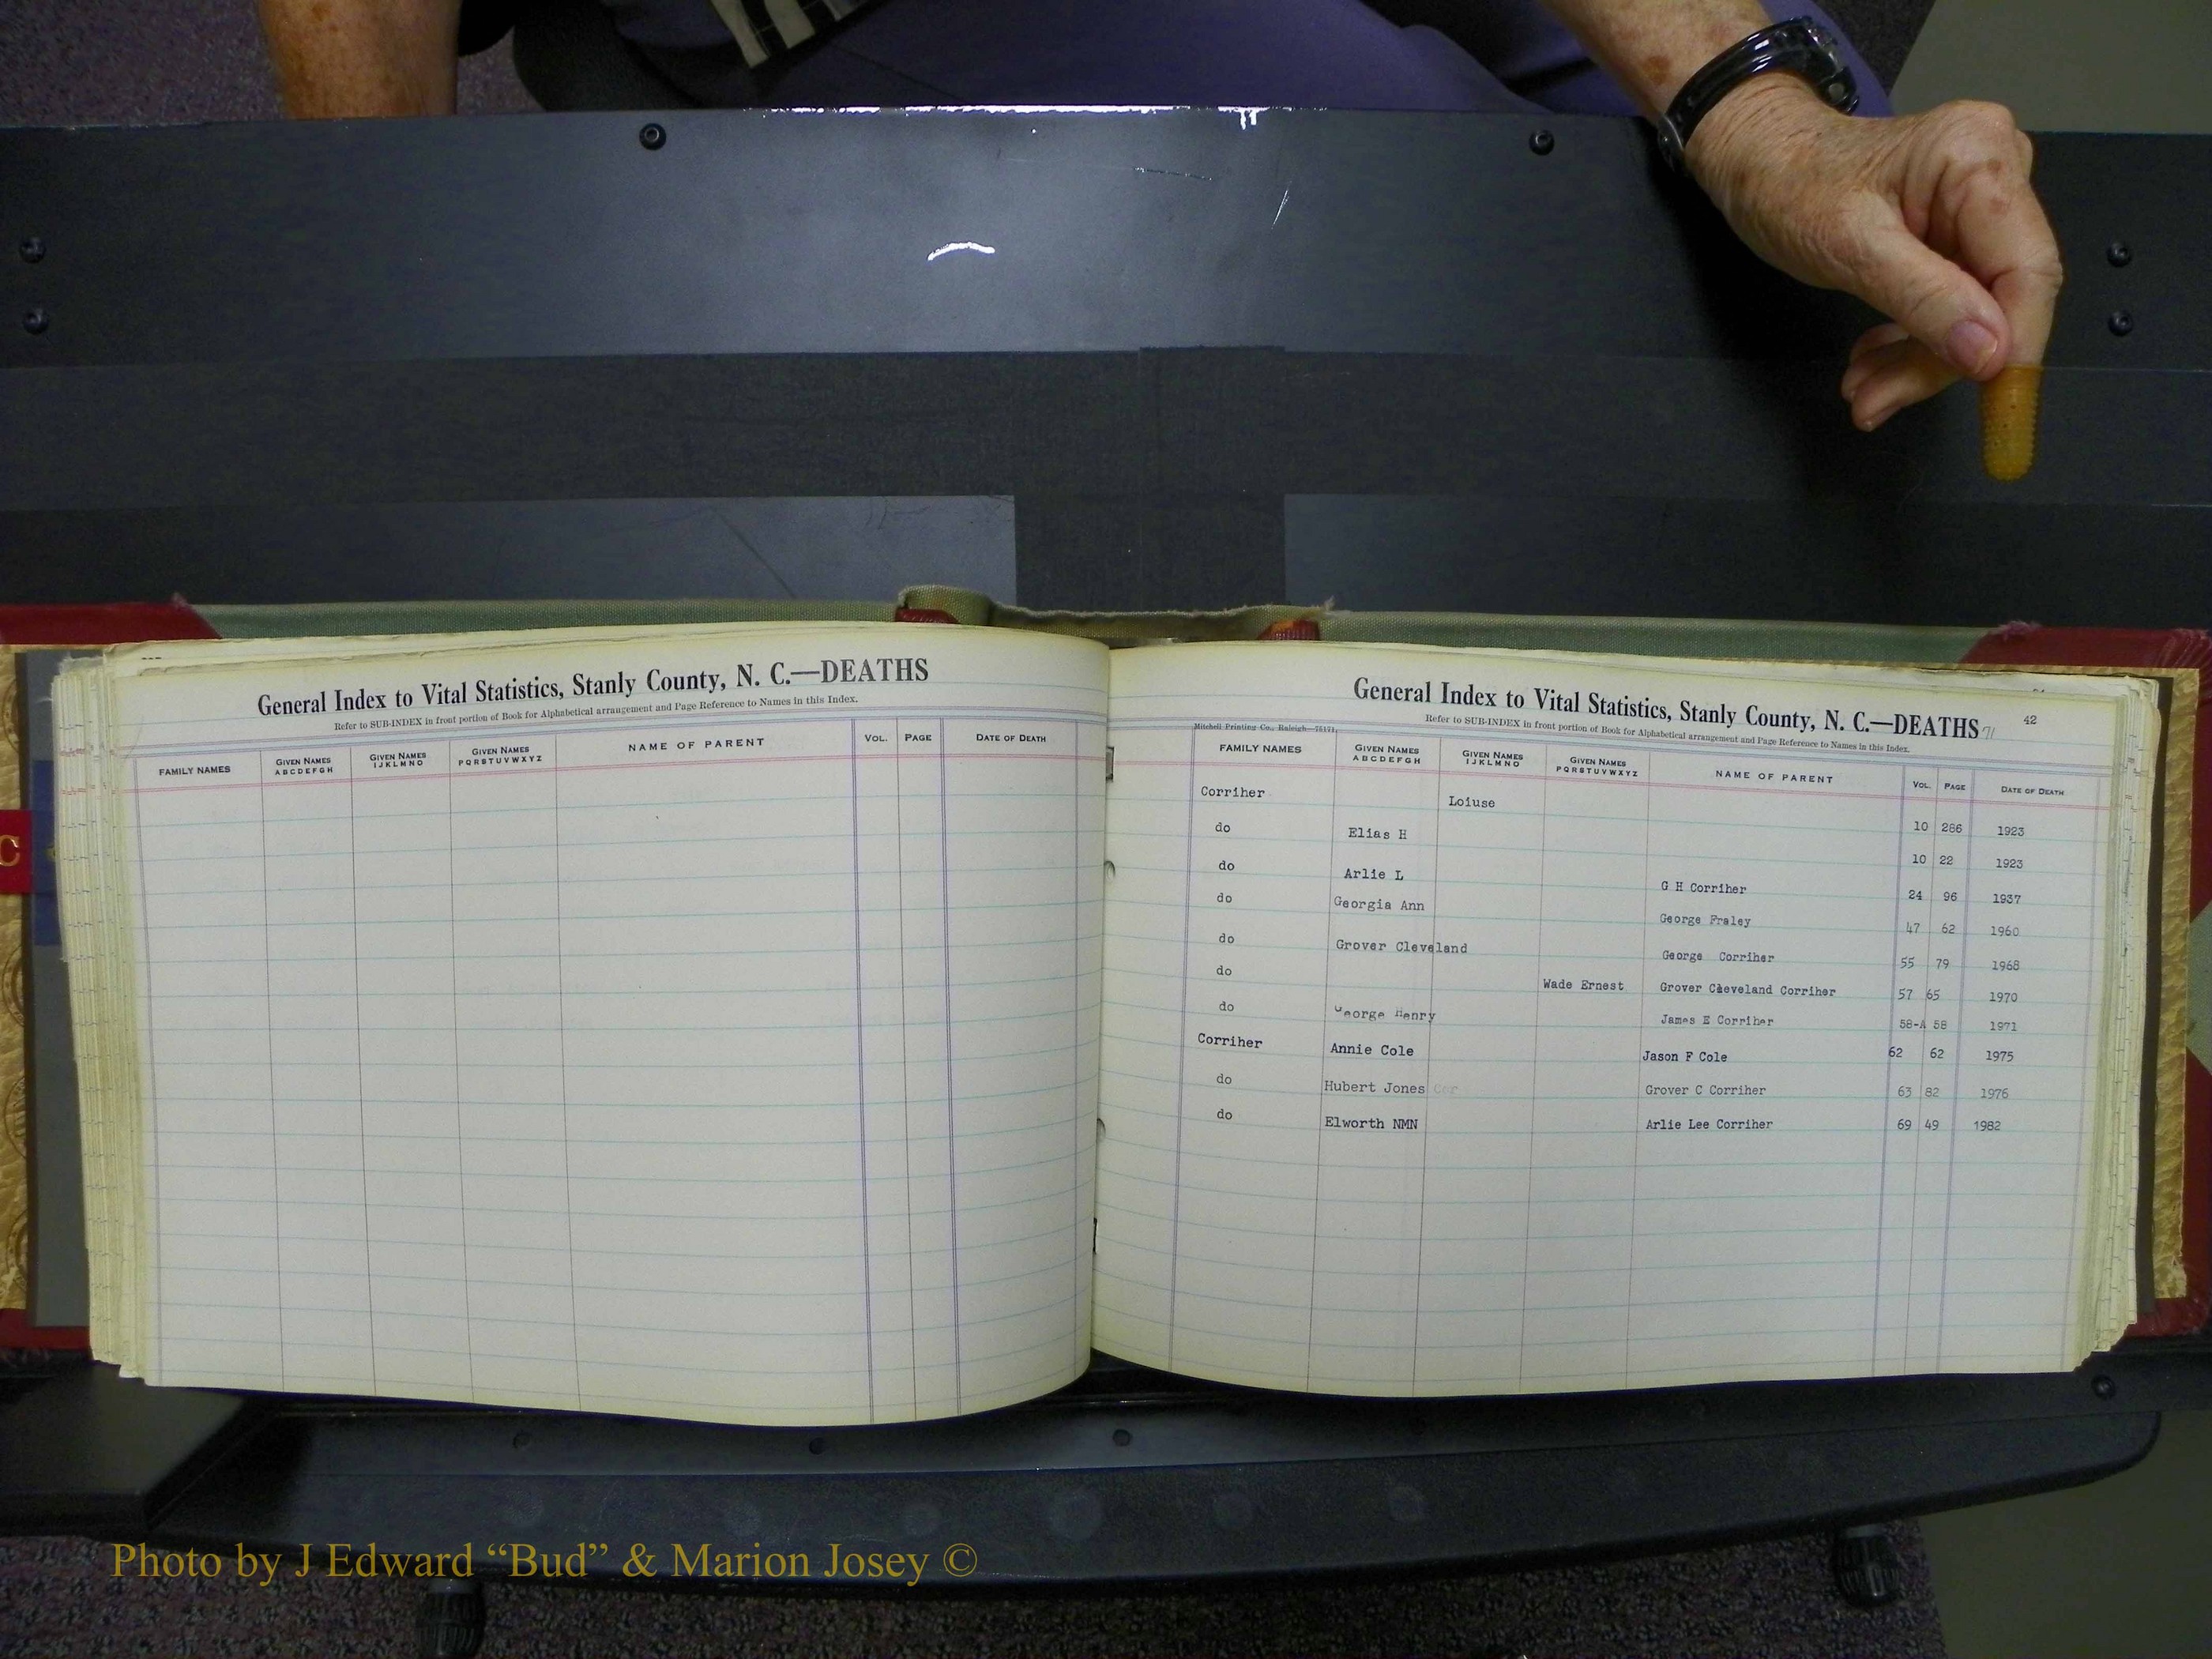 General Index to Vital Statistics, Stanly County, N. C.—DEATHS
Refer to SUB-INDEX in front portion of Book for Alphabetical arrangement and Page Reference to Names in this Index.
FAMILY NAMES GIVEN NAMES ABCDEFGH GIVEN NAMES IJKLMNO GIVEN NAMES PQRSTUVWXYZ NAME OF PARENT VOL. PAGE DATE OF DEATH
C
General Index to Vital Statistics, Stanly County, N. C.—DEATHS 71 42
Refer to SUB-INDEX in front portion of Book for Alphabetical arrangement and Page Reference to Names in this Index.
Mitchell Printing Co., Raleigh—75171
FAMILY NAMES GIVEN NAMES ABCDEFGH GIVEN NAMES IJKLMNO GIVEN NAMES PQRSTUVWXYZ NAME OF PARENT VOL. PAGE DATE OF DEATH
Corriher Loiuse 10 286 1923
do Elias H 10 22 1923
do Arlie L G H Corriher 24 96 1937
do Georgia Ann George Fraley 47 62 1960
do Grover Cleveland George Corriher 55 79 1968
do Wade Ernest Grover Cleveland Corriher 57 65 1970
do George Henry James E Corriher 58-A 58 1971
Corriher Annie Cole Jason F Cole 62 62 1975
do Hubert Jones Cor Grover C Corriher 63 82 1976
do Elworth NMN Arlie Lee Corriher 69 49 1982
Photo by J Edward “Bud” & Marion Josey ©